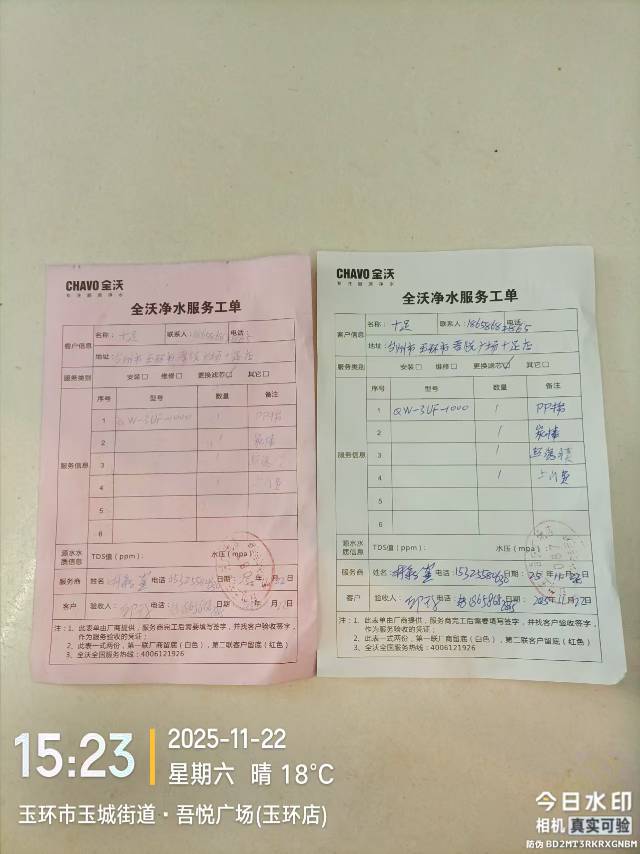 CHAVO全沃
专注超滤净水
全沃净水服务工单
客户信息
名称：十足
联系人：
电话
地址：台州市玉环市吾悦广场十足店
服务类别
安装□ 维修□ 更换滤芯☑ 其它□
服务信息
序号 型号 数量 备注
1 QW-3UF-1000 1 PP棉
2 1
3 1
4 1 上门费
5
6
源水水质信息
TDS值（ppm）： 水压（mpa）：
服务商
姓名： 电话 日期： 年 月 22日
客户
验收人： 电话： 日期： 年 月 日
注：1、此表单由厂商提供，服务商完工后需要填写签字，并找客户验收签字，
作为服务验收的凭证；
2、此表一式两份，第一联厂商留底（白色），第二联客户留底（红色）
3、全沃全国服务热线：4006121926
CHAVO全沃
专注超滤净水
全沃净水服务工单
客户信息
名称：十足
联系人：
电话：
地址：台州市玉环市吾悦广场十足店
服务类别
安装□ 维修□ 更换滤芯☑ 其它□
服务信息
序号 型号 数量 备注
1 QW-3UF-1000 1 PP棉
2 1
3 1
4 1 上门费
4
5
6
源水水质信息
TDS值（ppm）： 水压（mpa）：
服务商
姓名： 电话： 日期：25年11月22日
客户
验收人： 电话： 日期：2025年11月22日
注：1、此表单由厂商提供，服务商完工后需要填写签字，并找客户验收签字，
作为服务验收的凭证；
2、此表一式两份，第一联厂商留底（白色），第二联客户留底（红色）
3、全沃全国服务热线：4006121926
15:23
2025-11-22
星期六 晴 18°C
玉环市玉城街道·吾悦广场(玉环店)
今日水印
相机 真实可验
防伪 BD2MT3RKRXGNBM